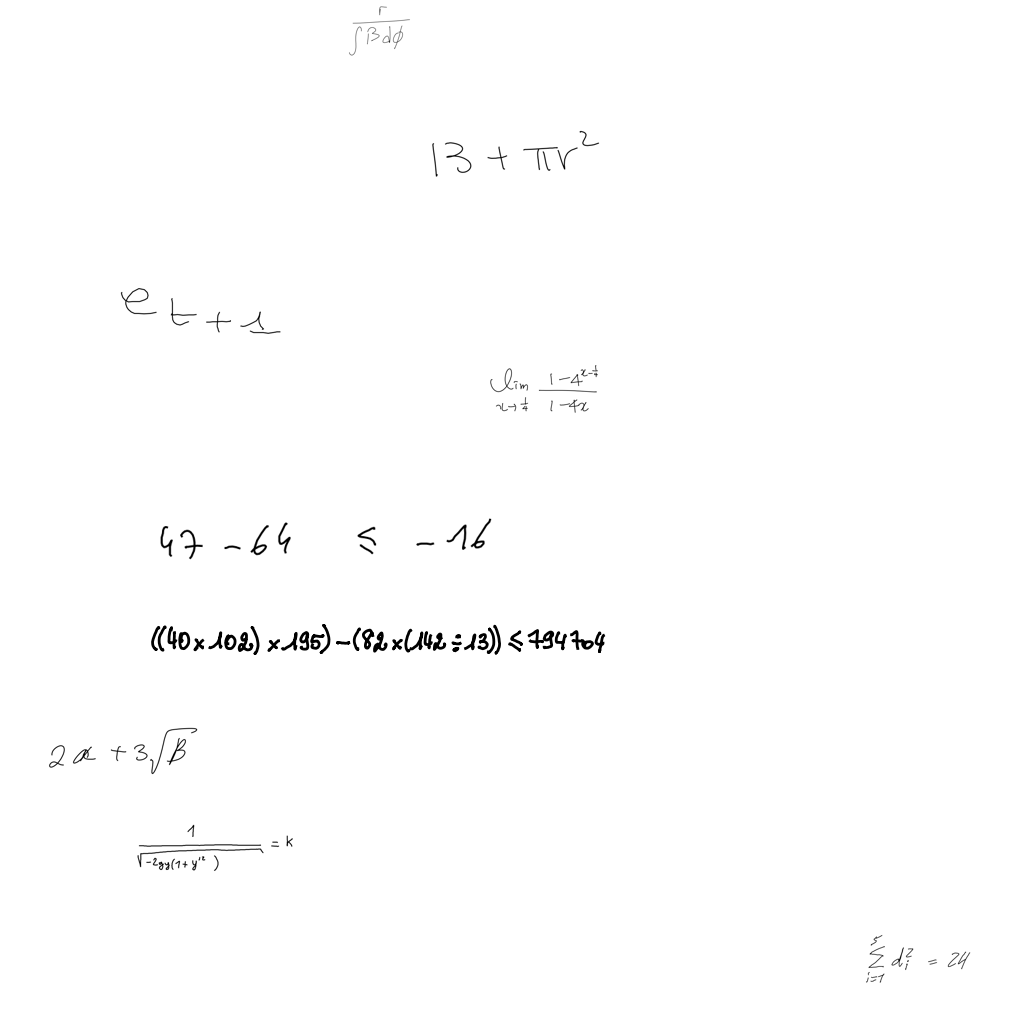 \frac{r}{\int \beta d\phi}
13 + \pi r^2
e_{t+1}
\lim_{x \to \frac{1}{4}} \frac{1-4^{x-\frac{1}{4}}}{1-4x}
47 - 64 \leq -16
((40 \times 102) \times 195) - (82 \times (142 \div 13)) \leq 794704
2\alpha + 3\sqrt{\beta}
\frac{1}{\sqrt{-2gy(1+y'^2)}} = k
\sum_{i=1}^{5} d_i^2 = 24